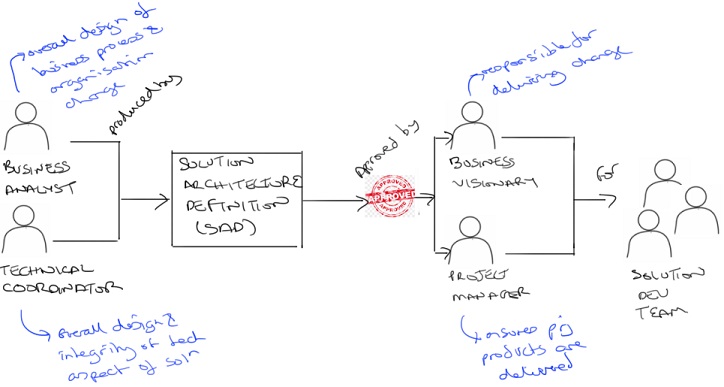 overall design of
business process &
organisation
change
produced by
BUSINESS
ANALYST
TECHNICAL
COORDINATOR
overall design &
integrity of tech
aspect of soln
SOLUTION
ARCHITECTURE
DEFINITION
(SAD)
Approved by
APPROVED
APPROVED
APPROVED
responsible for
delivering change
BUSINESS
VISIONARY
PROJECT
MANAGER
ensures prj
products are
delivered
for
SOLUTION
DEV
TEAM